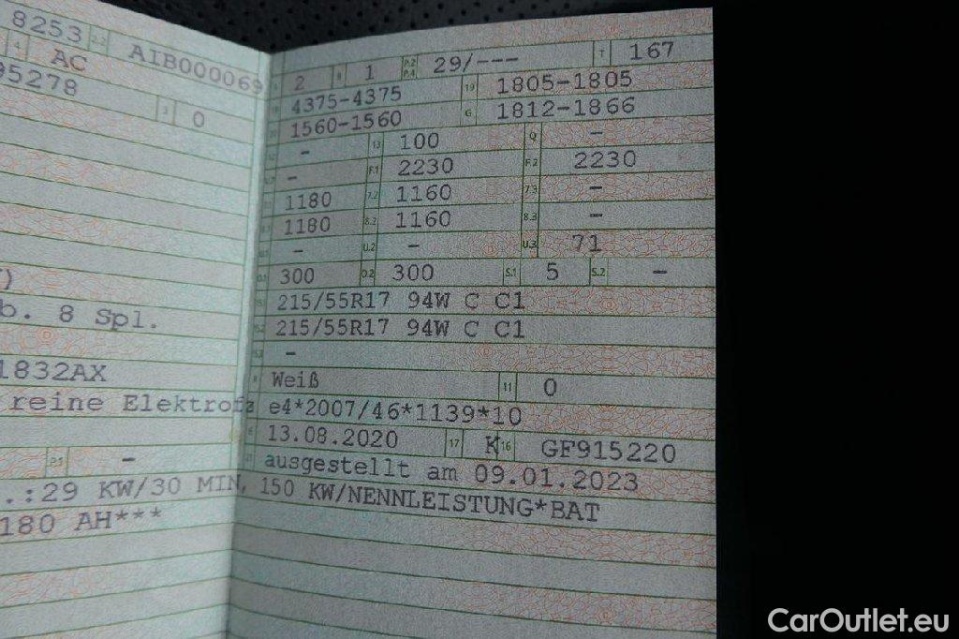 8253 2.2 AIB000069
4 AC
95278
3 0
b. 8 Spl.
1832AX
reine Elektrofz
2.1 -
.:29 KW/30 MIN, 150 KW/NENNLEISTUNG*BAT
180 AH***
2 9 1 P.2 P.4 29/--- T 167
4375-4375 19 1805-1805
1560-1560 G 1812-1866
- 13 100 Q -
- F.1 2230 F.2 2230
1180 7.2 1160 7.3 -
1180 8.2 1160 8.3 -
- U.2 - U.3 71
300 O.2 300 S.1 5 S.2 -
215/55R17 94W C C1
215/55R17 94W C C1
-
Weiß 11 0
e4*2007/46*1139*10
13.08.2020 17 K 16 GF915220
ausgestellt am 09.01.2023
CarOutlet.eu